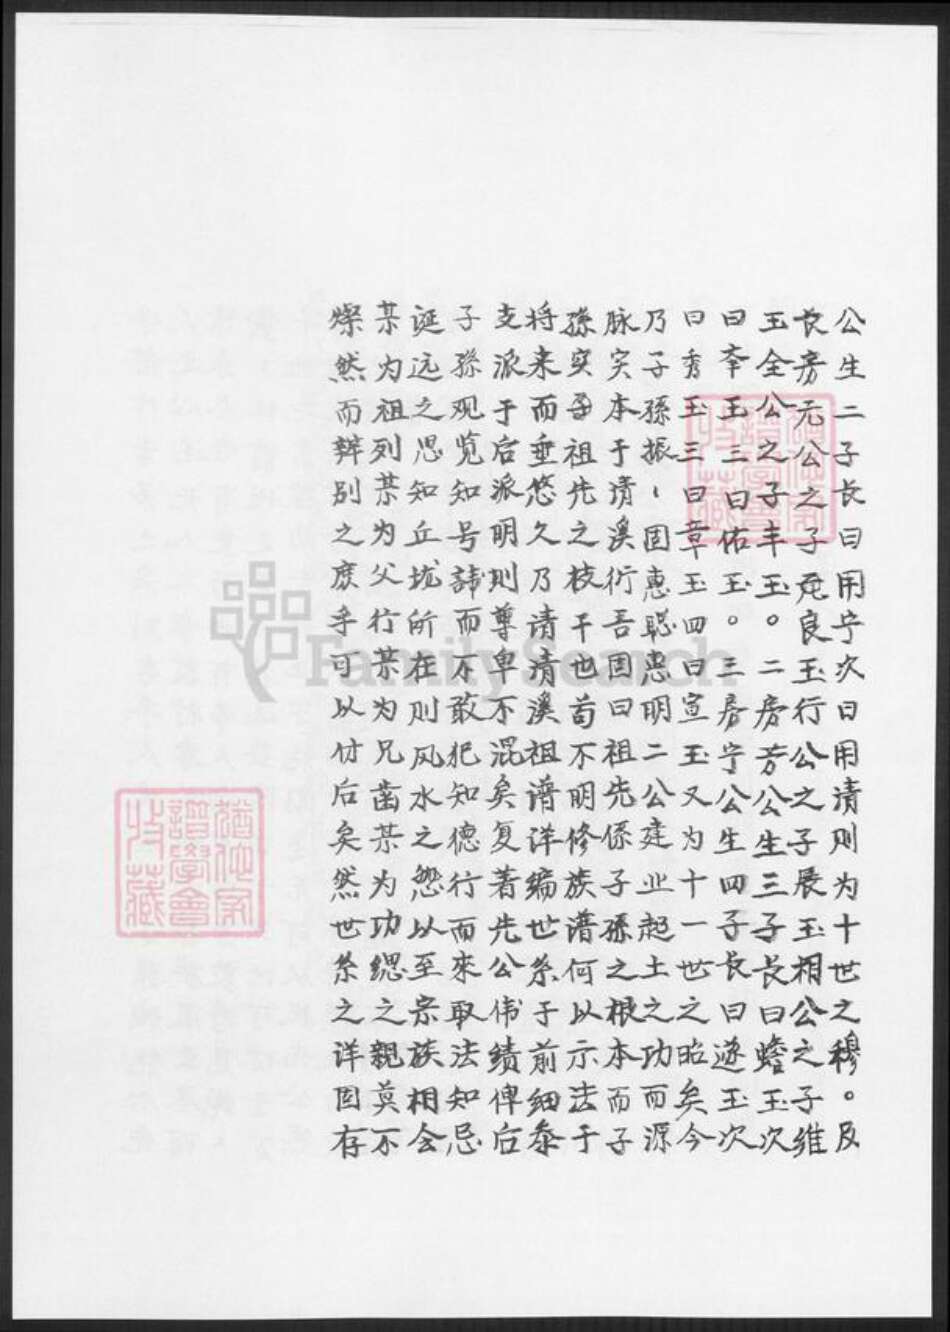 公生二子长曰用宁次曰用清则为十世之穆。及
长房元公之子兖良玉行公之子展玉相公之子维
玉全公之子丰玉。二房芳公生三子长曰蟾玉次
曰夲玉三曰佑玉。三房宁公生四子长曰遜玉次
曰秀玉三曰章玉四曰宣玉又为十一世之昭矣今
乃子孫振、固惠聪惠明二公建业起土之功而源
脉实本于清溪衍吾固曰祖先係子孫之根本而子
孫实祖先之枝干也苟不明修族谱何以示法于
将来而垂悠久乃请清溪祖谱详编世系于前细叅
支派于后派明则尊卑不混矣复著先公伟績俾后
子孫观览知号諱而不敢犯知德行而來取法知忌
诞远之思知丘垅所在则风水之怨以至宗族相会
某为祖列某为父行某为兄齒某为功緦之親莫不
燦然而辨别之庶乎可以付后矣然世系之详固存
猶他家譜學會收藏
猶他家譜學會收藏
FamilySearch